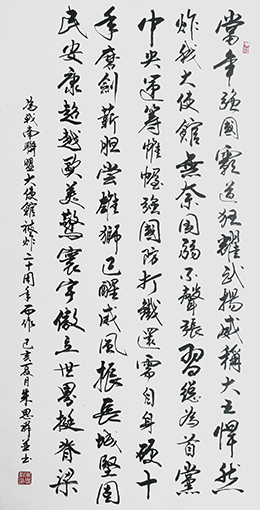 當年強國霸道狂耀武揚威稱大王悍然
炸我大使館無奈國弱不聲張習總為首黨
中央運籌帷幄強國防打鐵還需自身硬十
年磨劍薪胆尝雄獅已醒威風振長城堅固
民安康超越歐美驚寰宇傲立世界挺脊梁
為我南聯盟大使館被炸二十周年而作 己亥夏月朱思祥並書